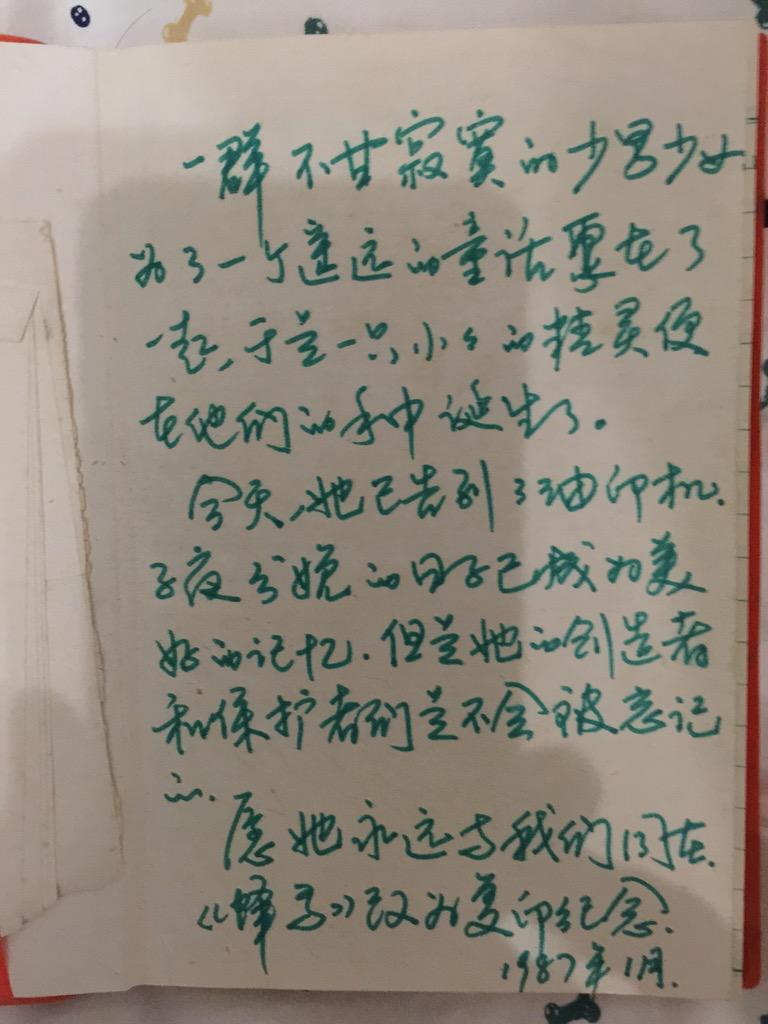 一群不甘寂寞的少男少女
为了一个遥远的童话聚在了
一起,于是一只小小的精灵便
在他们的手中诞生了。
今天,她已告别了油印机.
子夜分娩的日子已成为美
好的记忆.但是她的创造者
和保护者们是不会被忘记
的.
愿她永远与我们同在.
《蜂鸟》改为复印纪念.
1987年1月.